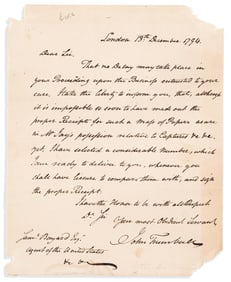 London 13th December 1794.
Dear Sir
That no Delay may take place in
your Proceeding upon the Business entrusted to your
care, I take the Liberty to inform you, that, although
it is impossible so soon to have made out the
proper Receipt for such a Mass of Papers as are
in Mr. Jay's possession relative to Captures &c &c,
yet I have selected a considerable Number, which
I am ready to deliver to you, whenever you
shall have leisure to compare them with, and sign
the proper Receipt.
I have the Honor to be with all Respect
Dr. Sir
Your most Obedient Servant
John Trumbull
Saml. Bayard Esq.
Agent of the United States
&c &c